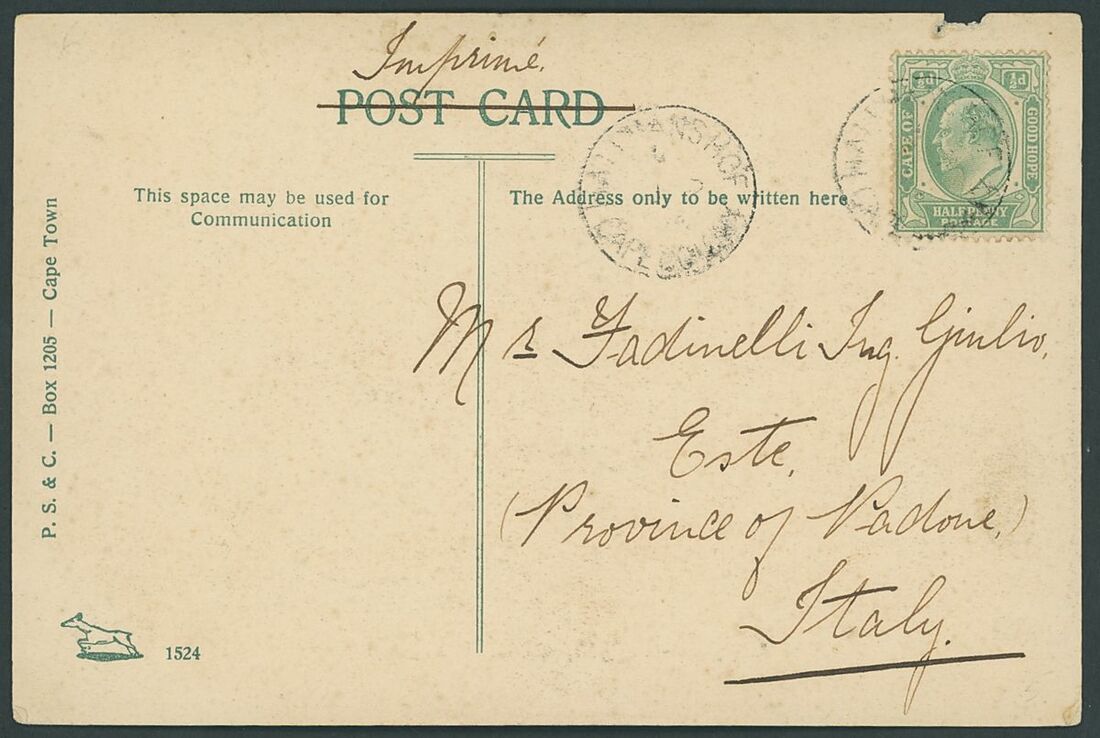 Imprimé.
POST CARD
This space may be used for
Communication
The Address only to be written here
P. S. & C. — Box 1205 — Cape Town
½d ½d
CAPE OF GOOD HOPE
HALFPENNY
POSTAGE
CAPE COLONY
Mr Fadinelli Ing. Giulio,
Este,
(Province of Padone,)
Italy.
1524